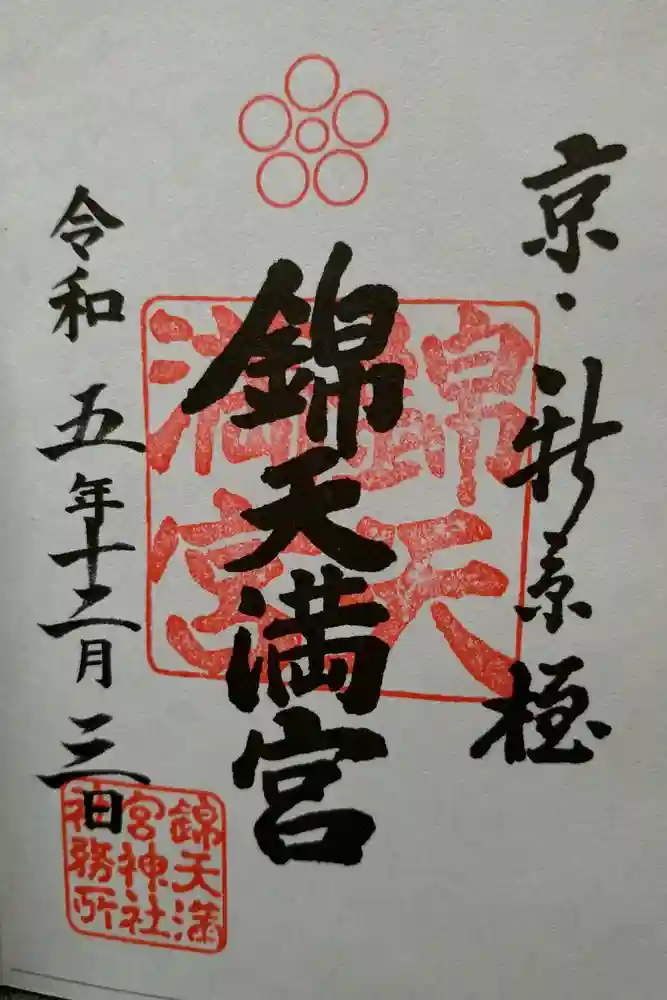 京・新京極
錦天満宮
錦天
満宮
令和五年十二月三日
錦天満
宮神社
社務所